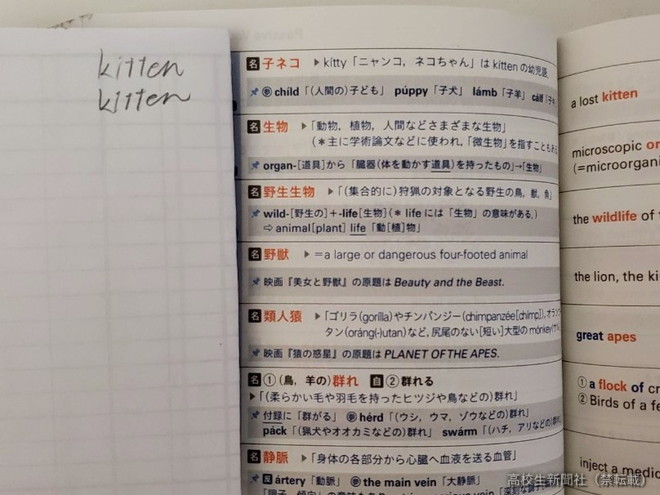 kitten
kitten
名 子ネコ ▶kítty「ニャンコ，ネコちゃん」は kitten の幼児語
参 child「（人間の）子ども」 púppy「子犬」 lámb「子羊」 cálf「子牛
名 生物 ▶「動物，植物，人間などさまざまな生物」
（＊主に学術論文などに使われ，「微生物」を指すことも
organ-[道具]から「臓器（体を動かす道具）を持ったもの」→「生物」
名 野生生物 ▶「（集合的に）狩猟の対象となる野生の鳥，獣，魚」
wild-[野生の]+-life[生物]（＊ life には「生物」の意味がある。）
⇨ animal[plant] life「動[植]物」
名 野獣 ▶＝a large or dangerous four-footed animal
映画『美女と野獣』の原題は Beauty and the Beast.
名 類人猿 ▶「ゴリラ（gorílla）やチンパンジー（chimpanzée[chímp]），オラン
タン（oráng(-)utan）など，尻尾のない[短い]大型の mónkey
映画『猿の惑星』の原題は PLANET OF THE APES.
名①（鳥，羊の）群れ 自②群れる
▶「（柔らかい毛や羽毛を持ったヒツジや鳥などの）群れ」
付録に「群がる」 参 hérd「（ウシ，ウマ，ゾウなどの）群れ」
páck「（猟犬やオオカミなどの）群れ」 swárm「（ハチ，アリなどの）群れ」
名 静脈 ▶「身体の各部分から心臓へ血液を送る血管」
反 ártery「動脈」 参 the main vein「大静脈」
a lost kitten
microscopic or
(=microorgani
the wildlife of
the lion, the ki
great apes
① a flock of
② Birds of a fe
inject a medic
高校生新聞社（禁転載）